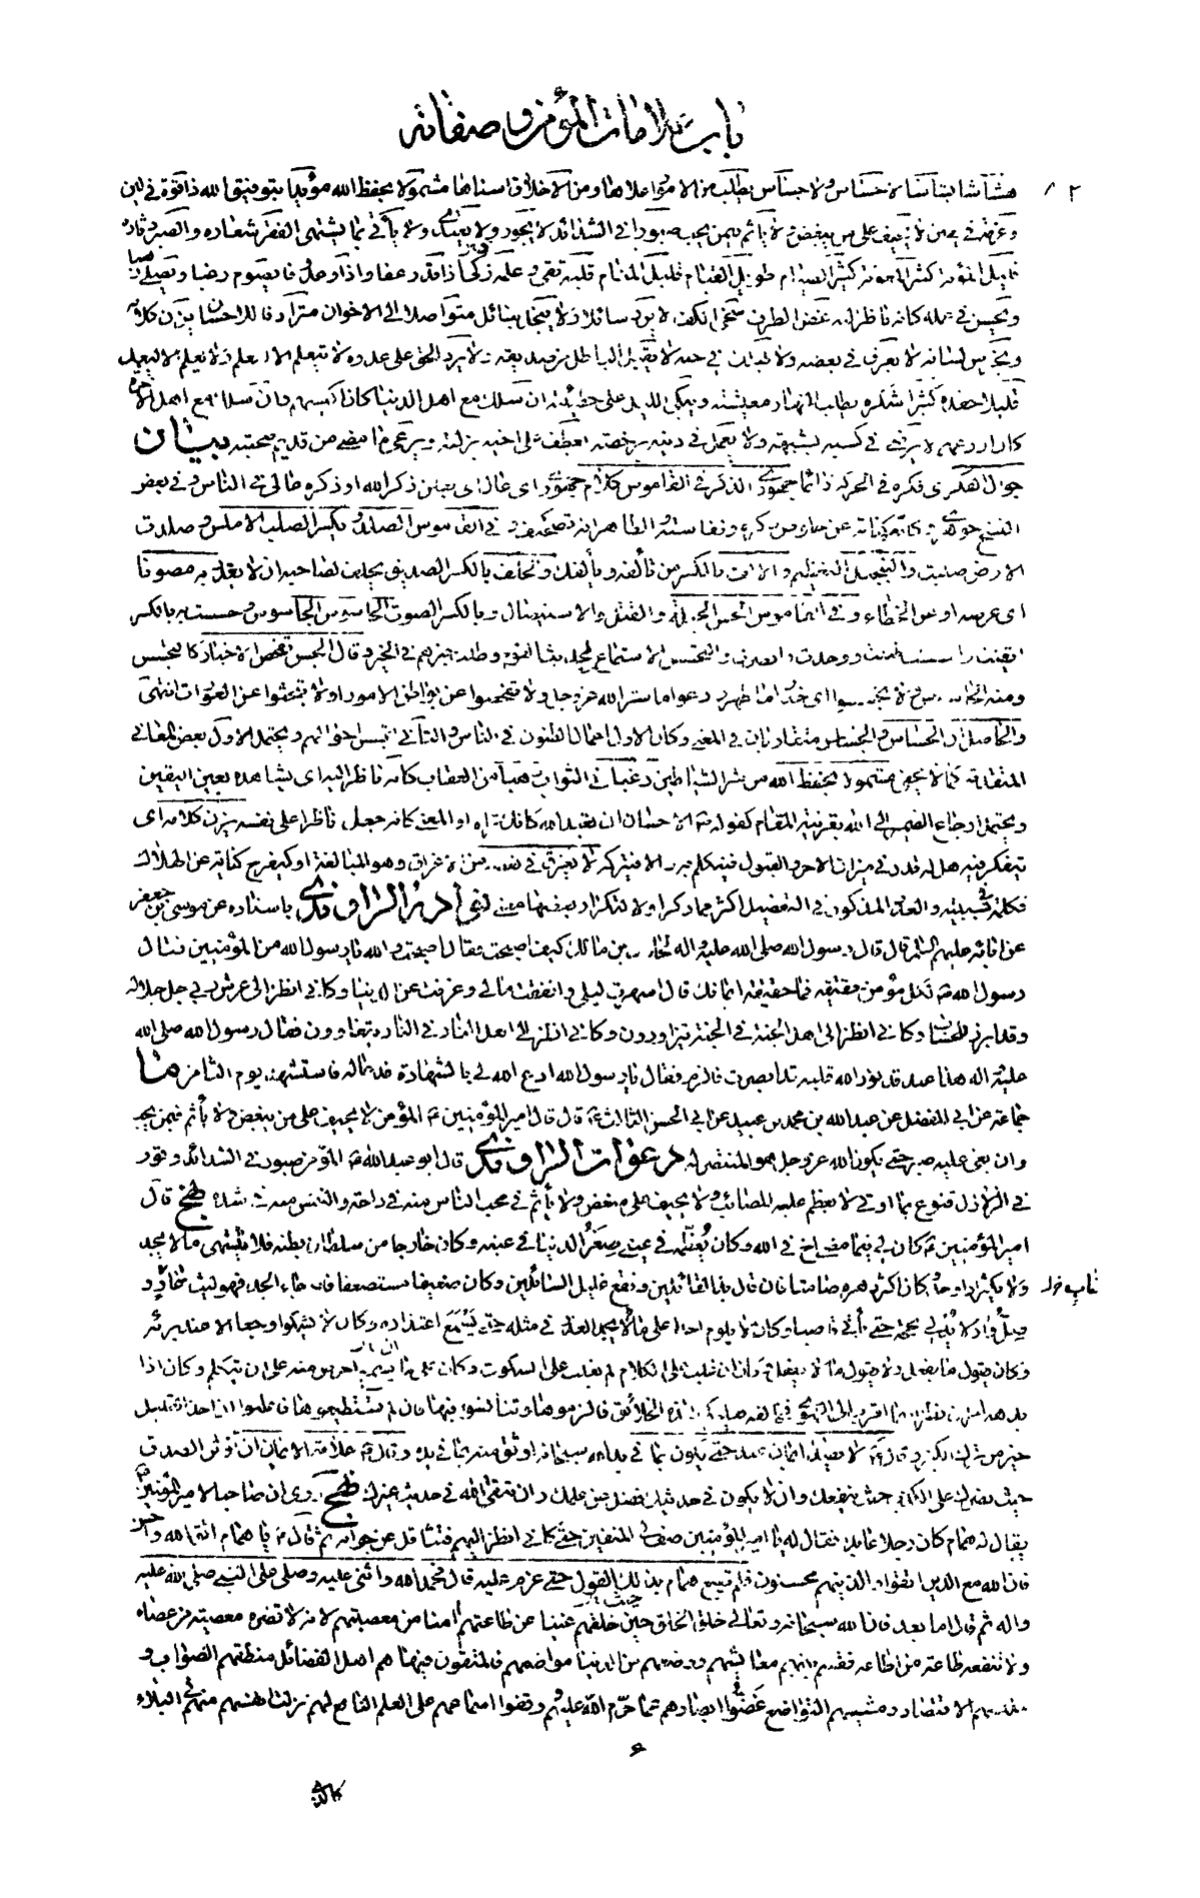 باب علامات المؤمن و صفاته
٨٢ هشاشا بشاشا لا حساس ولا جساس يطلب من الامور اعلاها ومن الاخلاق اسناها مشمولا بحفظ الله مؤيدا بتوفيق الله ذا قوة في لين
وعزمة في يقين لا يحيف على من يبغض ولا يأثم فيمن يحب صبور في الشدائد لا يجور ولا يعتدي ولا يأتي بما يشتهي الفقر شعاره والصبر دثاره
قليل المؤنة كثير المعونة كثير الصيام طويل القيام قليل المنام قلبه تقي وعلمه زكي اذا قدر عفا واذا وعد وفا يصوم رغبا ويصلي رهبا
ويحسن في عمله كانه ناظر اليه غض الطرف سخي الكف لا يرد سائلا ولا يبخل بنائل متواصلا الى الاخوان مترادفا للاحسان يزن كلامه
ويخرس لسانه لا يغرق في بغضه ولا يهلك في حبه لا يقبل الباطل من صديقه ولا يرد الحق على عدوه لا يتعلم الا ليعلم ولا يعلم الا ليعمل
قليلا حقده كثيرا شكره يطلب النهار معيشته ويبكي الليل على خطيئته ان سلك مع اهل الدنيا كان اكيسهم وان سلك مع اهل الاخرة
كان اورعهم لا يرضى في كسبه بشبهة ولا يعمل في دينه برخصة يعطف على اخيه بزلته ويرعى ما مضى من قديم صحبته بيان
جوال الفكر اي فكره في الحركة دائما جهوري الذكر في القاموس كلام جهوري اي عال اي يعلن ذكر الله او ذكره عالي في الناس وفي بعض
النسخ جوهري
الارض صلبت والتبجيل التعظيم والالف بالكسر من تألفه ويألفك
اي عرضه او عن الخطاء وفي القاموس الحس الجلبة والقتل والاستيصال وبالكسر الصوت الحاسوس الجاسوس وحسست به بالكسر
ايقنت
ومنه الجاسوس ولا تجسسوا اي خذوا ما ظهر ودعوا ما ستر الله عز وجل ولا تفحصوا عن بواطن الامور او لا تبحثوا عن العورات انتهى
والحاصل ان الحساس والجساس متقاربان في المعنى وكان الاول اعمال الظنون في الناس والثاني تجسس احوالهم ويحتمل الاول بعض المعاني
المتقدمة كما لا يخفى مشمولا بحفظ الله من شر الشياطين رغبا في الثواب رهبا من العقاب كانه ناظر اليه اي يشاهده بعين اليقين
ويحتمل ارجاع الضمير الى الله بقرينة المقام كقوله ص الاحسان ان تعبد الله كانك تراه او المعنى كانه جعل ناظرا على نفسه يزن كلامه اي
يتفكر فيه هل له قدر في ميزان الاجر والقبول فيتكلم به والا فيتركه لا يغرق في بغضه من الاغراق وهو المبالغة او كيفرح كناية عن الهلاك
فكلمة في سببية والعدد المذكور في التفصيل اكثر مما ذكر اولا لتكرار بعضها معنى نوادر الراوندي باسناده عن موسى بن جعفر
عن ابائه عليهم السلم قال قال رسول الله صلى الله عليه واله لحارثة بن مالك كيف اصبحت فقال اصبحت والله يا رسول الله من المؤمنين فقال
رسول الله ص لكل مؤمن حقيقة فما حقيقة ايمانك قال اسهرت ليلي وانفقت مالي وعزفت عن الدنيا وكاني انظر الى عرش ربي جل جلاله
وقد ابرز للحساب وكاني انظر الى اهل الجنة في الجنة يتزاورون وكاني انظر الى اهل النار في النار يتعاوون فقال رسول الله صلى الله
عليه واله هذا عبد قد نور الله قلبه قد ابصرت فالزم فقال يا رسول الله ادع الله لي بالشهادة فدعا له فاستشهد يوم الثامن ما
جماعة عن ابي المفضل عن عبد الله بن محمد بن عبيد عن ابي الحسن الثالث ع قال قال امير المؤمنين ع المؤمن لا يحيف على من يبغض ولا يأثم فيمن يحب
وان بغي عليه صبر حتى يكون الله عز وجل هو المنتصر له دعوات الراوندي قال ابو عبد الله ع المؤمن صبور في الشدائد وقور
في الزلازل قنوع بما اوتي لا يعظم عليه المصائب ولا يحيف على مبغض ولا يأثم في محب الناس منه في راحة والنفس منه في شدة نهج قال
امير المؤمنين ع كان لي فيما مضى اخ في الله وكان يعظمه في عيني صغر الدنيا في عينه وكان خارجا من سلطان بطنه فلا يشتهي ما لا يجد
ولا يكثر اذا وجد كان اكثر دهره صامتا فان قال بذ القائلين ونقع غليل السائلين وكان ضعيفا مستضعفا فان جاء الجد فهو ليث عاد و
غاب خ ل
صل واد لا يدلي بحجة حتى يأتي قاضيا وكان لا يلوم احدا على ما لا يجد العذر في مثله حتى يسمع اعتذاره وكان لا يشكو وجعا الا عند برئه
وكان يقول ما يفعل ولا يقول ما لا يفعل وكان ان غلب على الكلام لم يغلب على السكوت وكان على ان يسمع احرص منه على ان يتكلم وكان اذا
بدهه امران نظر ايهما اقرب الى الهوى فخالفه فعليكم بهذه الخلائق فالزموها وتنافسوا فيها فان لم تستطيعوها فاعلموا ان اخذ القليل
خير من ترك الكثير وقال ع لا يصدق ايمان عبد حتى يكون بما في يد الله سبحانه اوثق منه بما في يده وقال ع علامة الايمان ان تؤثر الصدق
حيث يضرك على الكذب حيث ينفعك وان لا يكون في حديثك فضل عن علمك وان تتقي الله في حديث غيرك نهج روي ان صاحبا لامير المؤمنين ع
يقال له همام كان رجلا عابدا فقال له يا امير المؤمنين صف لي المتقين حتى كاني انظر اليهم فتثاقل عن جوابه ثم قال ع يا همام اتق الله واحسن
فان الله مع الذين اتقوا والذينهم محسنون فلم يقنع همام بذلك القول حتى عزم عليه قال فحمد الله واثنى عليه وصلى على النبي صلى الله عليه
واله ثم قال اما بعد فان الله سبحانه وتعالى خلق الخلق حين خلقهم غنيا عن طاعتهم امنا من معصيتهم لانه لا تضره معصية من عصاه
ولا تنفعه طاعة من اطاعه فقسم بينهم معائشهم ووضعهم من الدنيا مواضعهم فالمتقون فيها هم اهل الفضائل منطقهم الصواب و
ملبسهم الاقتصاد ومشيهم التواضع غضوا ابصارهم عما حرم الله عليهم ووقفوا اسماعهم على العلم النافع لهم نزلت انفسهم منهم في البلاء